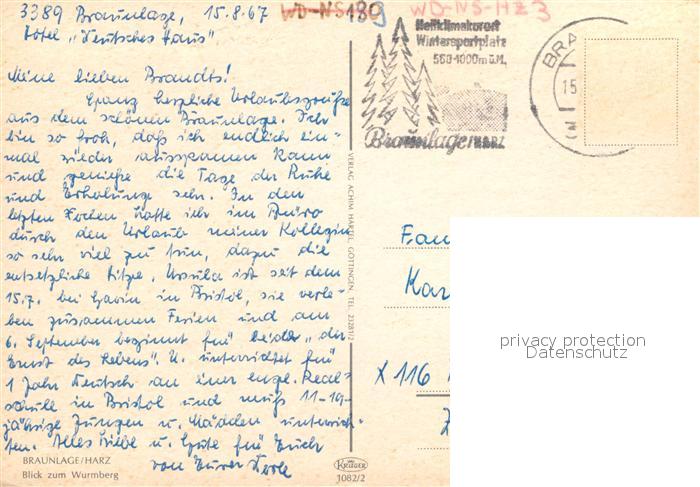 3389 Braunlage, 15.8.67
Hotel „Deutsches Haus"
WD-NS-HZ3
Heilklimakurort
Wintersportplatz
560-1000 m ü.M.
Braunlage/HARZ
BRA
15
Meine lieben Brandts!
Ganz herzliche Urlaubsgrüße
aus dem schönen Braunlage. Ich
bin so froh, daß ich endlich ein-
mal wieder ausspannen kann
und genieße die Tage der Ruhe
und Erholung sehr. In den
letzten Wochen hatte ich im Büro
durch den Urlaub meiner Kollegin
so sehr viel zu tun, dazu die
entsetzliche Hitze. Ursula ist seit dem
15.7. bei in Bristol, sie verle-
ben zusammen Ferien und am
6. September beginnt für beide „der
Ernst des Lebens". U. unterrichtet für
1 Jahr Deutsch an einer engl. Real-
schule in Bristol und muß 11-19-
jährige Jungen u. Mädchen unterrich-
ten. Alles Liebe u. Gute für Euch
von Eurer
VERLAG ACHIM HARTEL GÖTTINGEN TEL. 23281/2
Fam
Kar
X 116
privacy protection
Datenschutz
BRAUNLAGE/HARZ
Blick zum Wurmberg
Krüger
1082/2